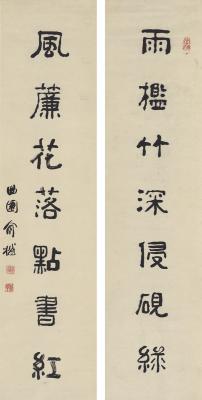 雨檻竹深侵硯緑
風簾花落點書紅
曲園俞樾